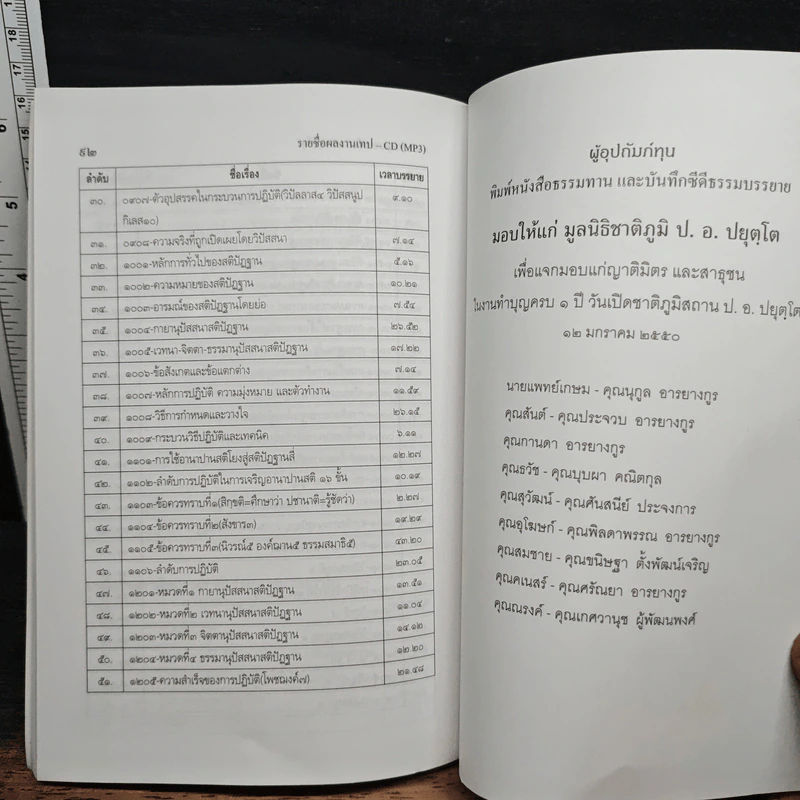 ๕๒
รายชื่อผลงานเทป – CD (MP3)
ลำดับ ชื่อเรื่อง เวลาบรรยาย
๓๐. ๐๙๐๗-ตัวอุปสรรคในกระบวนการปฏิบัติ(วิปัลลาส๔ วิปัสสนูป ๙.๑๐
กิเลส๑๐)
๓๑. ๐๙๐๘-ความจริงที่ถูกเปิดเผยโดยวิปัสสนา ๗.๑๔
๓๒. ๑๐๐๑-หลักการทั่วไปของสติปัฏฐาน ๕.๑๖
๓๓. ๑๐๐๒-ความหมายของสติปัฏฐาน ๑๐.๒๑
๓๔. ๑๐๐๓-อารมณ์ของสติปัฏฐานโดยย่อ ๗.๕๔
๓๕. ๑๐๐๔-กายานุปัสสนาสติปัฏฐาน ๒๖.๕๒
๓๖. ๑๐๐๕-เวทนา-จิตตา-ธรรมานุปัสสนาสติปัฏฐาน ๑๗.๒๒
๓๗. ๑๐๐๖-ข้อสังเกตและข้อแตกต่าง ๗.๑๔
๓๘. ๑๐๐๗-หลักการปฏิบัติ ความมุ่งหมาย และตัวทำงาน ๑๑.๕๙
๓๙. ๑๐๐๘-วิธีการกำหนดและวางใจ ๒๖.๑๕
๔๐. ๑๐๐๙-กระบวนวิธีปฏิบัติและเทคนิค ๖.๑๑
๔๑. ๑๑๐๑-การใช้อานาปานสติโยงสู่สติปัฏฐานสี่ ๑๒.๒๗
๔๒. ๑๑๐๒-ลำดับการปฏิบัติในการเจริญอานาปานสติ ๑๖ ขั้น ๑๐.๑๙
๔๓. ๑๑๐๓-ข้อควรทราบที่๑(สิกฺขติ=ศึกษาว่า ปชานาติ=รู้ชัดว่า) ๒.๒๗
๔๔. ๑๑๐๔-ข้อควรทราบที่๒(สังขาร๓) ๑๙.๒๙
๔๕. ๑๑๐๕-ข้อควรทราบที่๓(นิวรณ์๕ องค์ฌาน๕ ธรรมสมาธิ๕) ๔๓.๒๐
๔๖. ๑๑๐๖-ลำดับการปฏิบัติ ๒๓.๐๕
๔๗. ๑๒๐๑-หมวดที่๑ กายานุปัสสนาสติปัฏฐาน ๑๓.๕๑
๔๘. ๑๒๐๒-หมวดที่๒ เวทนานุปัสสนาสติปัฏฐาน ๑๑.๐๔
๔๙. ๑๒๐๓-หมวดที่๓ จิตตานุปัสสนาสติปัฏฐาน ๑๔.๑๒
๕๐. ๑๒๐๔-หมวดที่๔ ธรรมานุปัสสนาสติปัฏฐาน ๑๒.๒๐
๕๑. ๑๒๐๕-ความสำเร็จของการปฏิบัติ(โพชฌงค์๗) ๒๑.๔๘
ผู้อุปถัมภ์ทุน
พิมพ์หนังสือธรรมทาน และบันทึกซีดีธรรมบรรยาย
มอบให้แก่ มูลนิธิชาติภูมิ ป. อ. ปยุตฺโต
เพื่อแจกมอบแก่ญาติมิตร และสาธุชน
ในงานทำบุญครบ ๑ ปี วันเปิดชาติภูมิสถาน ป. อ. ปยุตฺโต
๑๒ มกราคม ๒๕๕๐
นายแพทย์เกษม - คุณนุกูล อารยางกูร
คุณสันต์ - คุณประจวบ อารยางกูร
คุณกานดา อารยางกูร
คุณธวัช - คุณบุบผา คณิตกุล
คุณสุวัฒน์ - คุณศันสนีย์ ประจงการ
คุณอุโฆษก์ - คุณพิลดาพรรณ อารยางกูร
คุณสมชาย - คุณขนิษฐา ตั้งพัฒน์เจริญ
คุณคเนสร์ - คุณศรัณยา อารยางกูร
คุณณรงค์ - คุณเกศวานุช ผู้พัฒนพงศ์
18
17
16
15
14
13
12
11
6
5
4